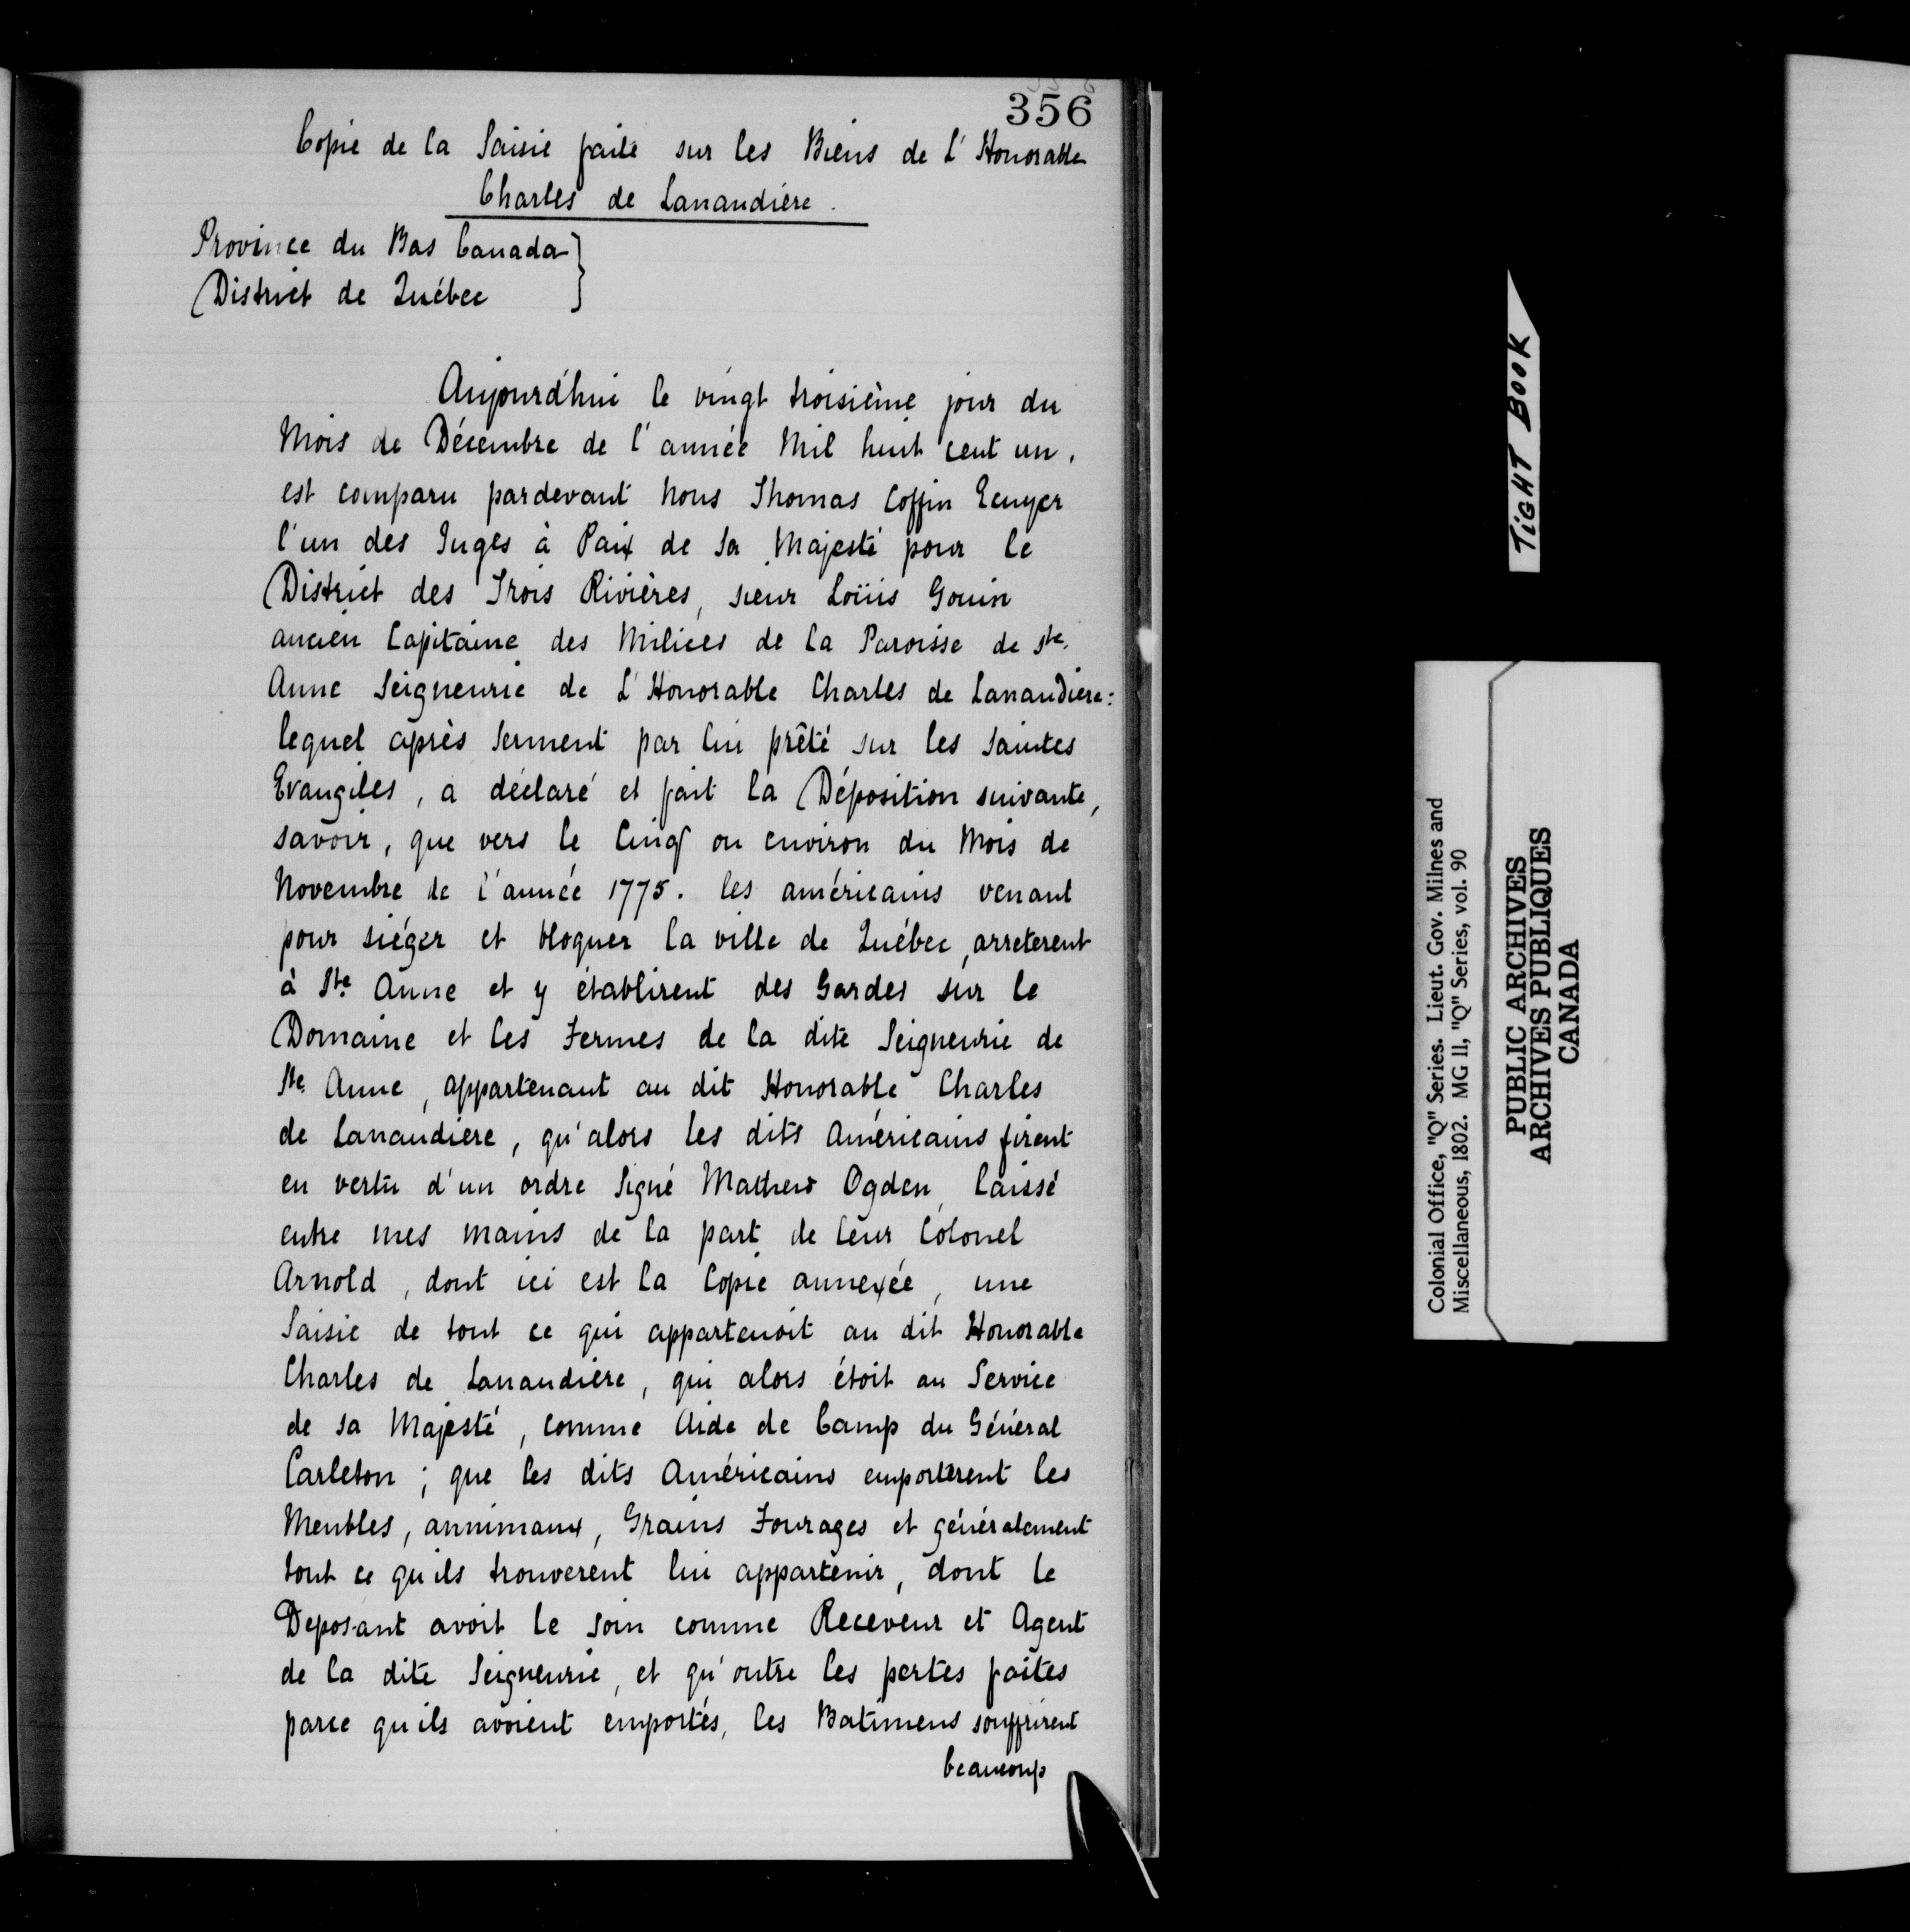 356
Copie de la Saisie faite sur les Biens de L'Honorable
Charles de Lanaudière.
Province du Bas Canada }
District de Québec }
Aujourd'hui le vingt troisième jour du
Mois de Décembre de l'année Mil huit cent un,
est comparu pardevant Nous Thomas Coffin Ecuyer
l'un des Juges à Paix de Sa Majesté pour le
District des Trois Rivières, sieur Loüis Gouin
ancien Capitaine des Milices de la Paroisse de Ste.
Anne Seigneurie de L'Honorable Charles de Lanaudière:
lequel après Serment par lui prêté sur les Saintes
Evangiles, a déclaré et fait la Déposition suivante,
savoir, que vers le Cinq ou environ du Mois de
Novembre de l'année 1775. les américains venant
pour siéger et bloquer la ville de Québec, arreterent
à Ste. Anne et y établirent des Gardes sur le
Domaine et les Fermes de la dite Seigneurie de
Ste. Anne, appartenant au dit Honorable Charles
de Lanaudière, qu'alors les dits Américains firent
en vertu d'un ordre Signé Mathew Ogden, laissé
entre mes mains de la part de leur Colonel
Arnold, dont ici est la Copie annexée, une
Saisie de tout ce qui appartenoit au dit Honorable
Charles de Lanaudière, qui alors étoit au Service
de sa Majesté, comme Aide de Camp du Général
Carleton; que les dits Américains emporterent les
Meubles, annimaux, Grains Fourages et généralement
tout ce qu'ils trouverent lui appartenir, dont le
Deposant avoit le soin comme Receveur et Agent
de la dite Seigneurie, et qu'outre les pertes faites
parce qu'ils avoient emportés, les Batimens souffrirent
beaucoup
TIGHT BOOK
Colonial Office, "Q" Series. Lieut. Gov. Milnes and
Miscellaneous, 1802. MG 11, "Q" Series, vol. 90
PUBLIC ARCHIVES
ARCHIVES PUBLIQUES
CANADA